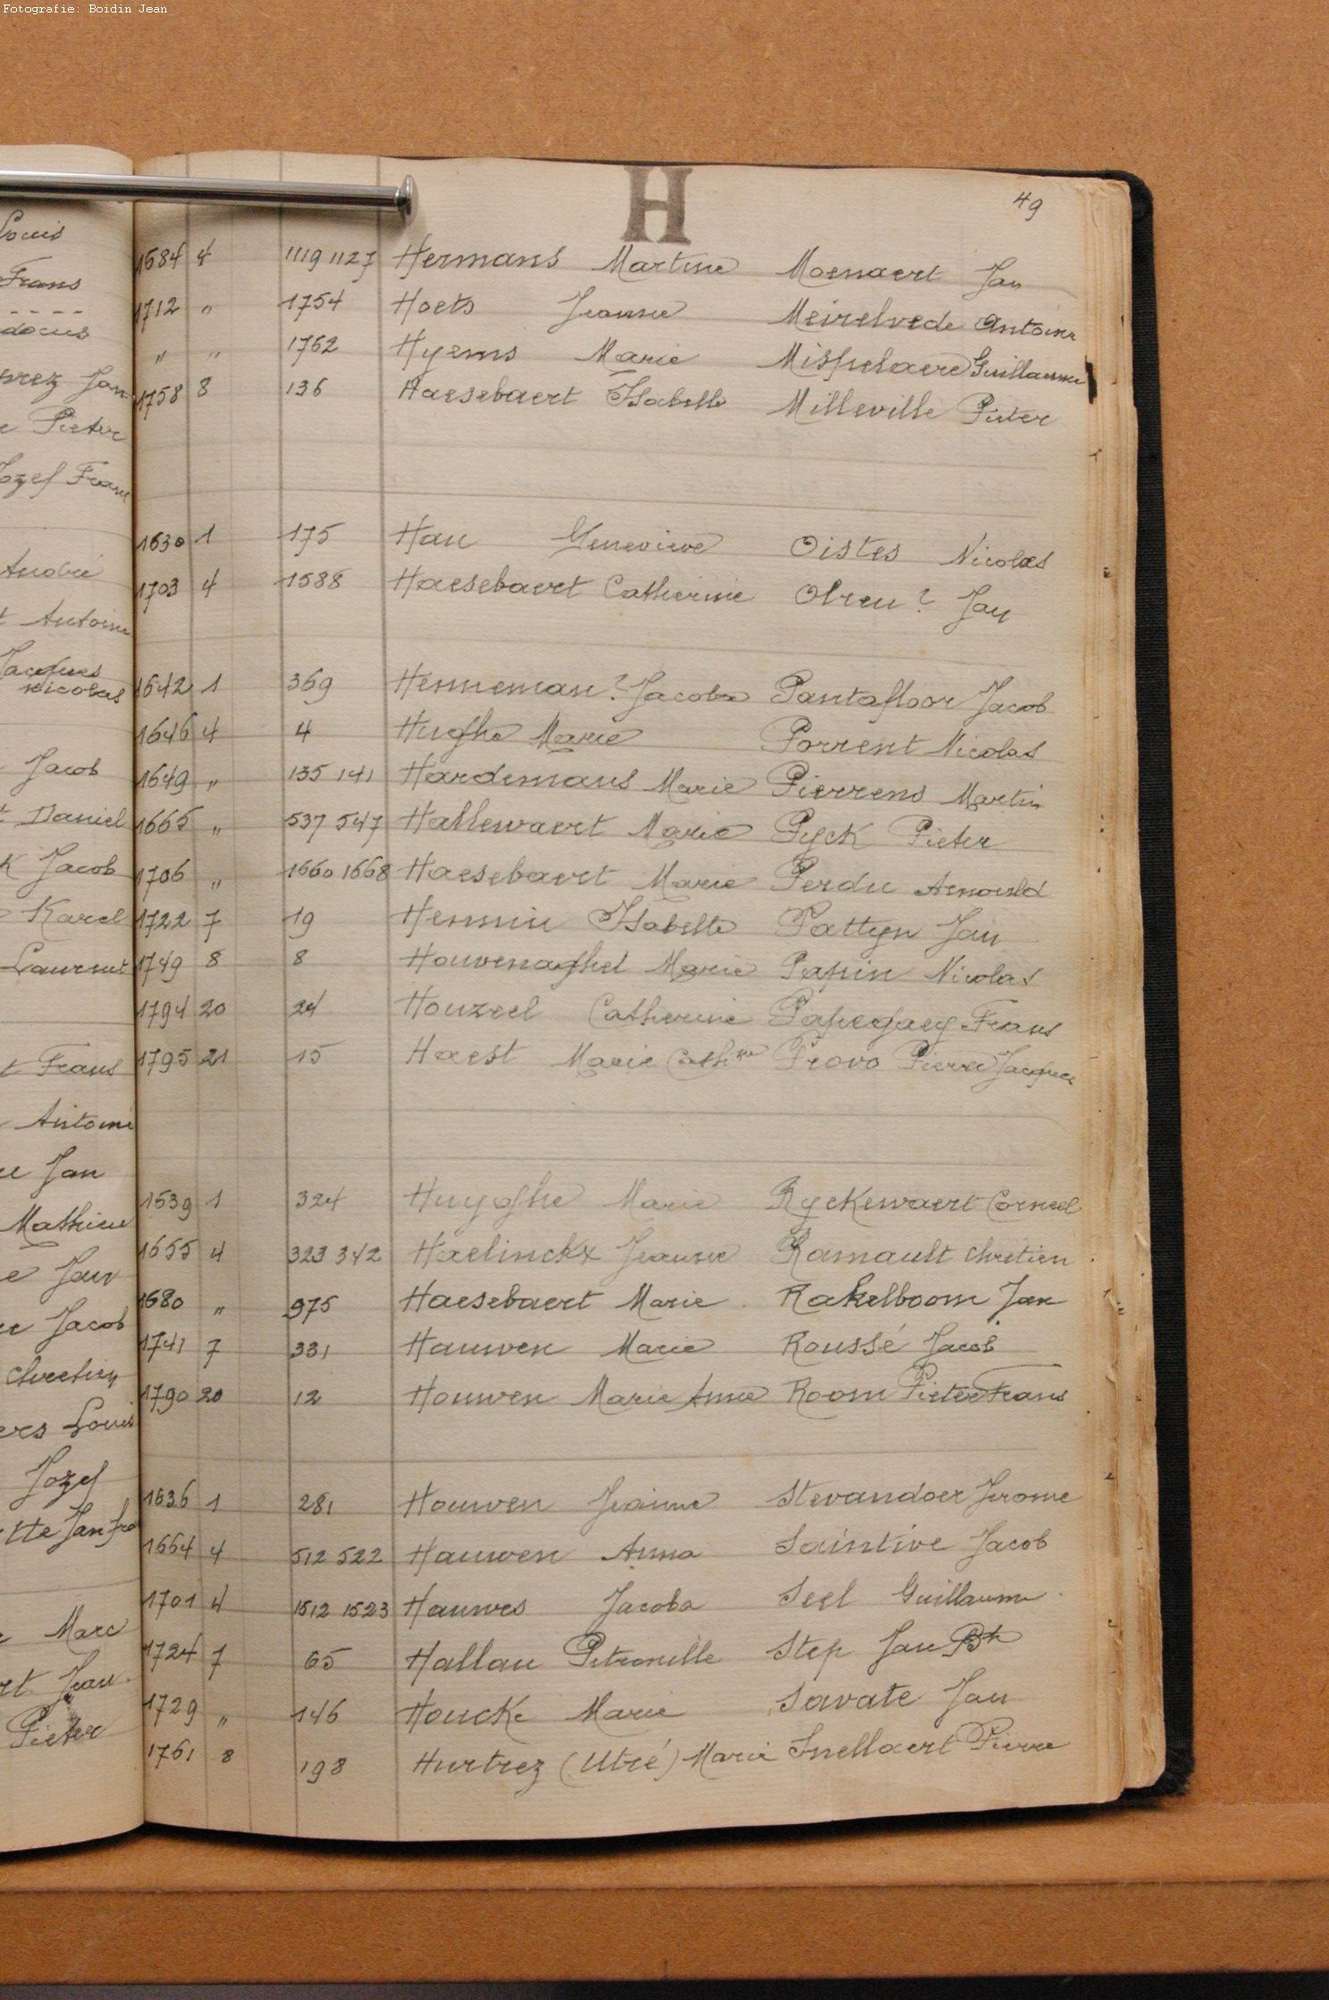 Fotografie: Boidin Jean
H
49
Louis
Frans
Jan
Pieter
Jozef Frans
André
Antoine
Jacques
Nicolas
Jacob
Daniel
Jacob
Karel
Laurent
Frans
Antoine
Jan
Mathieu
Jan
Jacob
Chretien
Louis
Jozef
Marc
Jean
Pieter
1684 4 1119 1127 Hermans Martine Moenaert Jan
1712 " 1754 Hoets Jeanne Meirelvede Antoine
" " 1762 Hyems Marie Mispelaere Guillaume
1758 8 136 Haesebaert Isabelle Milleville Pieter
1630 1 175 Hau Geneviève Oistes Nicolas
1703 4 1588 Haesebaert Catherine Olreu? Jan
1642 1 369 Henneman? Jacoba Pantafloor Jacob
1646 4 4 Hughe Marie Porrent Nicolas
1649 " 135 141 Hardemans Marie Pierrens Martin
1665 " 537 547 Hallewaert Marie Pyck Pieter
1706 " 1660 1668 Haesebaert Marie Perdu Arnould
1722 7 19 Hennin Isabelle Pattyn Jan
1749 8 8 Houvenaghel Marie Papin Nicolas
1794 20 24 Houzeel Catherine Papegaey Frans
1795 21 15 Haest Marie Cathne Provo Pierre Jacques
1639 1 324 Huyghe Marie Ryckewaert Corneel
1655 4 323 342 Haelinckx Jeanne Ramault Chretien
1680 " 975 Haesebaert Marie Rakelboom Jan
1741 7 331 Hauwen Marie Roussé Jacob
1790 20 12 Houwen Marie Anne Room Pieter Frans
1636 1 281 Houwen Jeanne Stevandoer Jerome
1664 4 512 522 Hauwen Anna Saintive Jacob
1701 4 1512 1523 Hauwes Jacoba Seel Guillaume
1724 7 65 Hallau Petronille Step Jan Bte
1729 " 146 Houcke Marie Savate Jan
1761 8 198 Hurtrez (Utré) Marie Snellaert Pierre